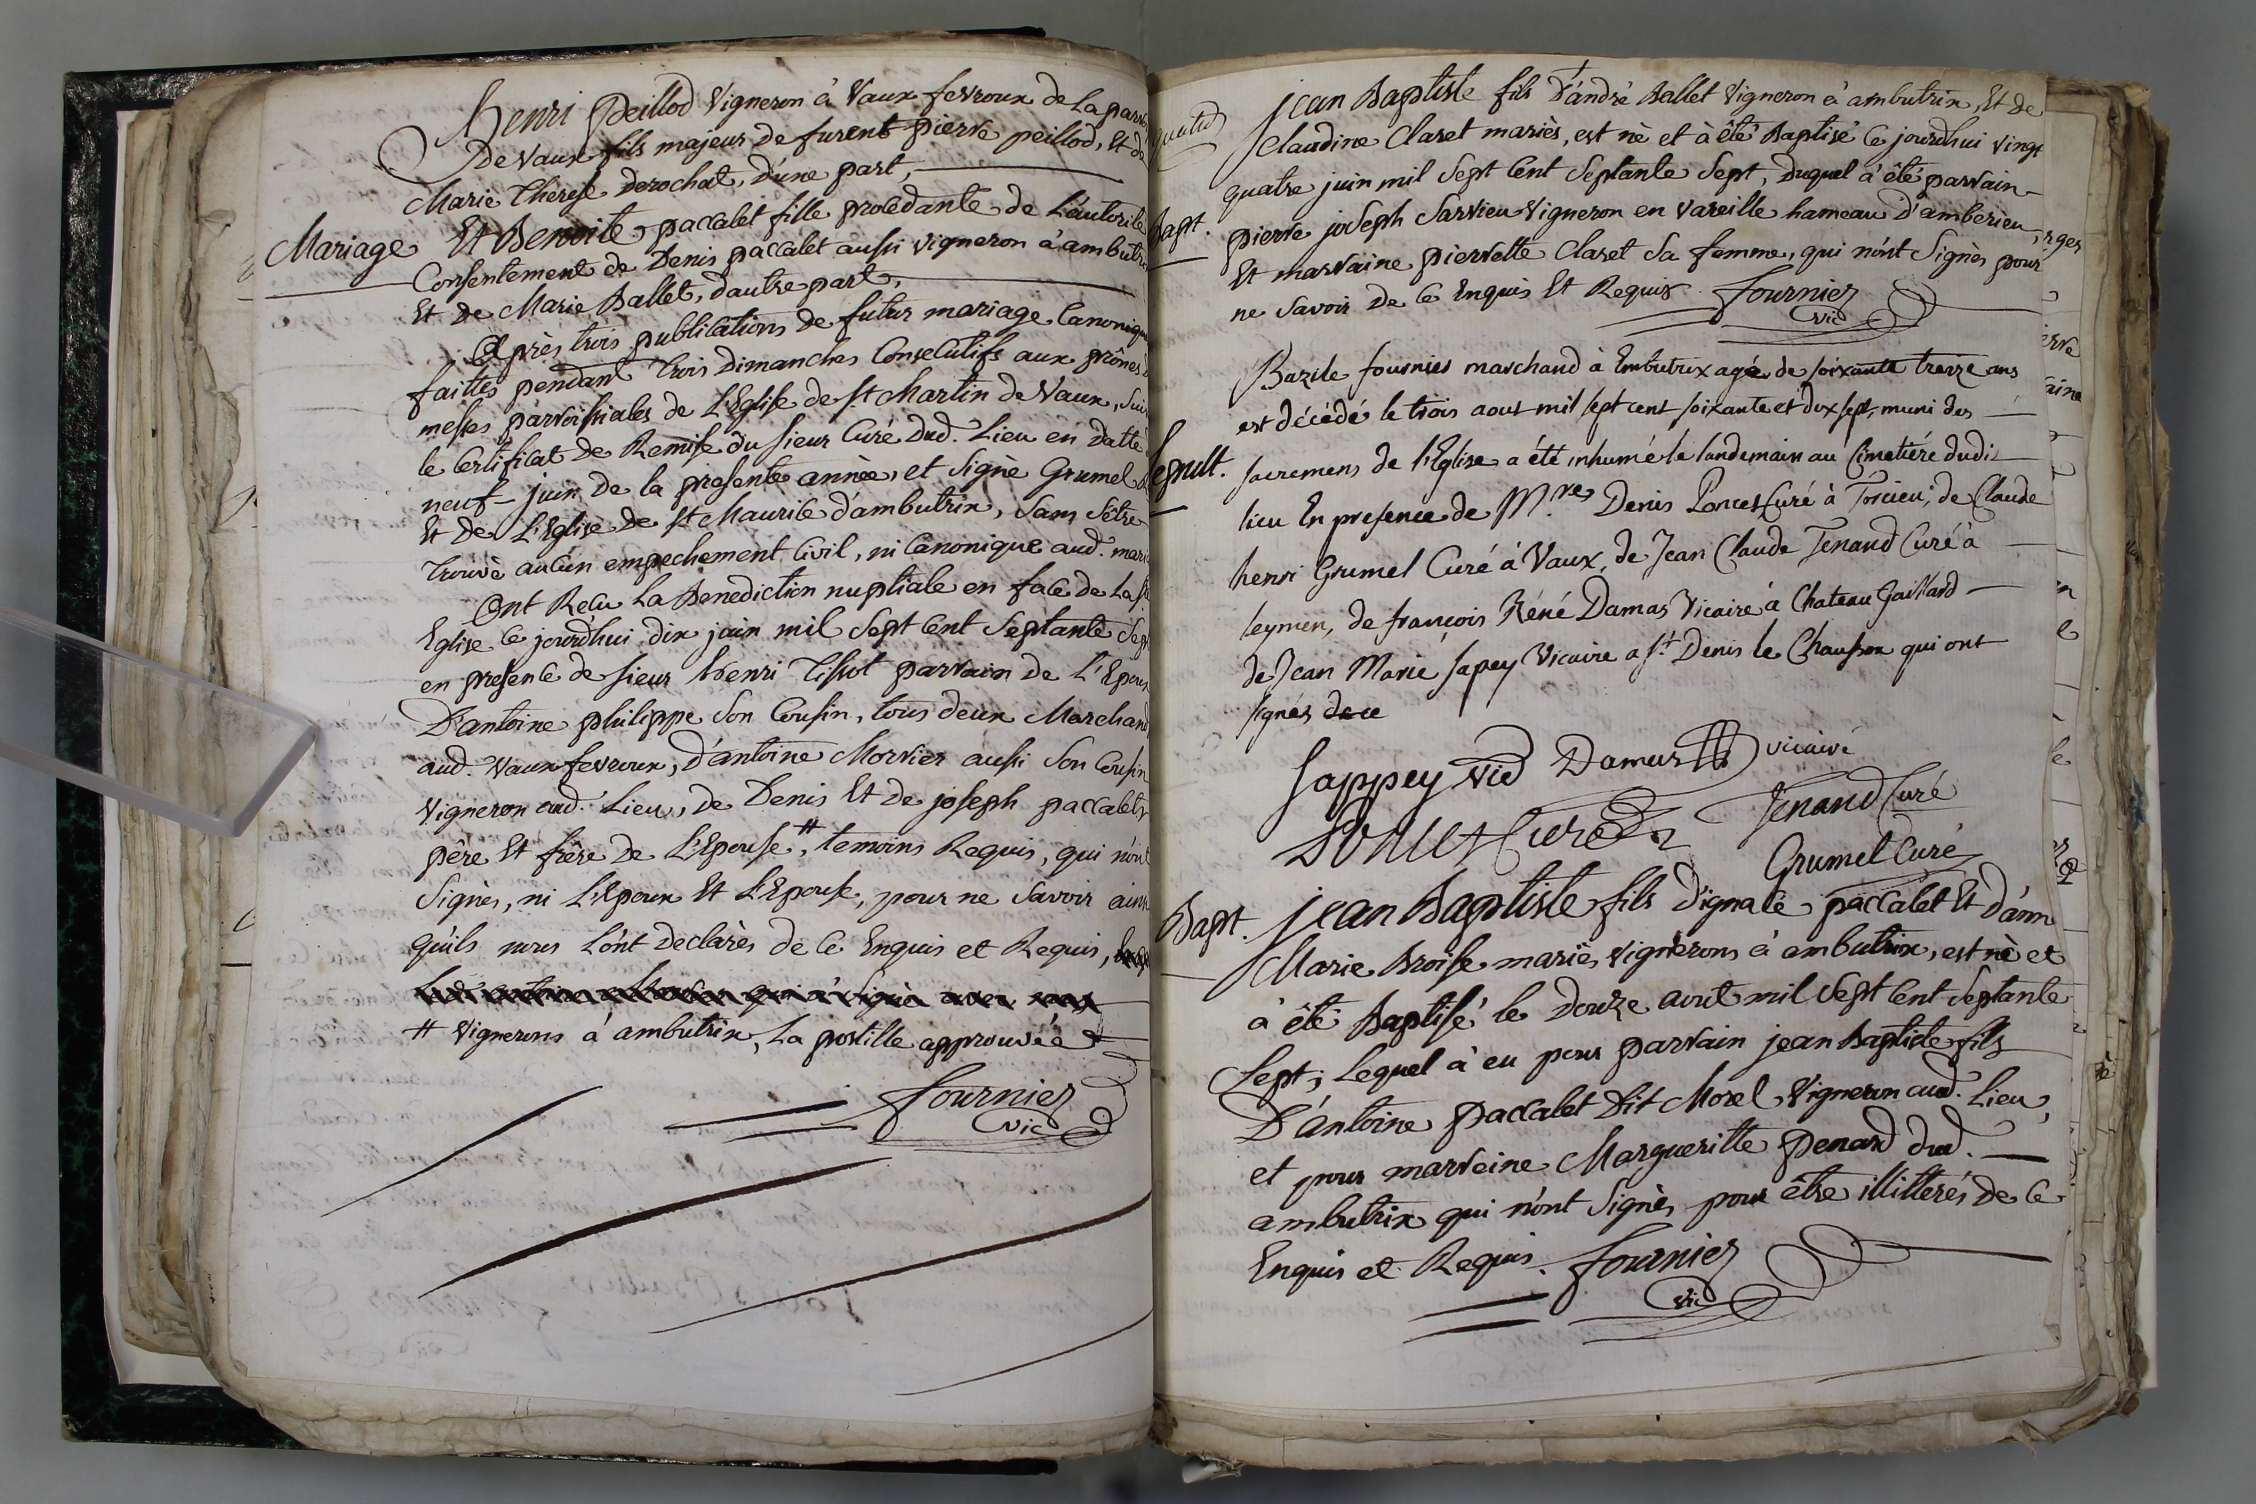 Henri Peillod Vigneron à Vaux fevroux de La paroi
De Vaux fils majeur de furent pierre peillod, Et de
Marie Therese Derochat, d'une part,
Mariage
Et Benoite paccalet fille procedante de L'autorite
Consentement de Denis paccalet aussi vigneron à ambutri
Et De Marie Ballet, d'autre part,
Après trois publications de futur mariage Canonique
faittes pendant trois Dimanches Consecutifs aux prônes d
messes parroissiales de L'Eglise de st Martin de Vaux, Suiv
le Certificat de Remise du sieur Curé dud. Lieu en datte
neuf juin de la presente annèe, et signè Grumel
Et de L'Eglise de st Maurice d'ambutrix, Sans s'être
trouvè aucun empechement Civil, ni Canonique aud. maria
Ont Recu La Benediction nuptiale en face de La ste
Eglise Ce jourd'hui dix juin mil Sept Cent Septante Sept
en presence de sieur Henri Tissot parrain de L'Epoux
D'antoine philippe Son Cousin, tous deux Marchand
aud. Vaux fevroux, d'antoine Morrier aussi Son Cousin
Vigneron aud. Lieu, de Denis Et de joseph paccalet
pêre Et frêre de L'Epouse #, temoins Requis, qui n'ont
Signès, ni L'Epoux Et L'Epouse, pour ne Savoir ainsi
qu'ils nous L'ont declarès de Ce Enquis et Requis,
# Vignerons à ambutrix, La postille approuvée
fournier
vic
Bapt.
jean Baptiste fils d'andré Ballet Vigneron à ambutrix, Et de
Claudine Claret mariès, est nè et à êtè Baptisé Ce jourdhui vingt
quatre juin mil Sept Cent Septante Sept, duquel a été parrain
pierre joseph Sarvieu Vigneron en Vareille hameau d'amberieu,
Et marraine pierrette Claret sa femme, qui n'ont Signès pour
ne savoir de Ce Enquis Et Requis
fournier
vic
Sepult.
Bazile fournier marchand à Embutrix agé de soixante treize ans
est décédé le trois aout mil sept cent soixante et dix sept, muni des
sacremens de l'Eglise a été inhumé le landemain au Cimetiére dudit
lieu En presence de M.res Denis Poncet Curé à Torcieu, de Claude
henri Grumel Curé à Vaux, de Jean Claude Tenand Curé à
leymen, de françois Réné Damas Vicaire à Chateau Gaillard
de Jean Marie Sapey Vicaire a St Denis le Chausson qui ont
signés de ce
Sappey vic Damas vicaire
Poncet Curé Tenand Curé
Grumel Curé
Bapt.
jean Baptiste fils d'ignace paccalet Et d'ann
Marie Broise mariès, vignerons à ambutrix, est nè et
à été Baptisé le Douze aout mil Sept Cent Septante
Sept; Lequel à eu pour parrain jean Baptiste fils
D'antoine Paccalet dit Morel Vigneron aud. Lieu,
et pour marreine Margueritte Penard dud.
ambutrix qui n'ont Signès pour être illitterés de Ce
Enquis et Requis. fournier
vic